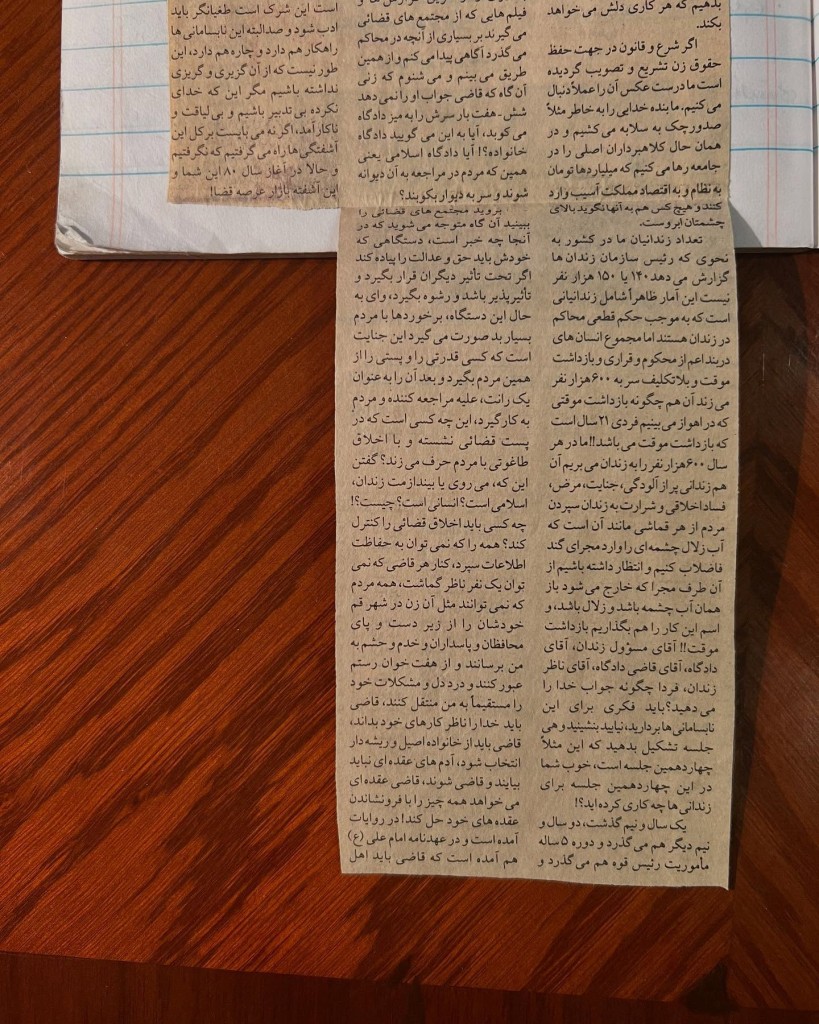 بدهیم که هر کاری دلش می‌خواهد
بکند.
اگر شرع و قانون در جهت حفظ
حقوق زن تشریع و تصویب گردیده
است ما درست عکس آن را عملاً دنبال
می‌کنیم، ما بنده خدایی را به خاطر مثلاً
صدور چک به سلابه می‌کشیم و در
همان حال کلاهبرداران اصلی را در
جامعه رها می‌کنیم که میلیاردها تومان
به نظام و به اقتصاد مملکت آسیب وارد
کنند و هیچ کس هم به آنها نگوید بالای
چشمتان ابروست.
تعداد زندانیان ما در کشور به
نحوی که رئیس سازمان زندان ها
گزارش می دهد ۱۴۰ یا ۱۵۰ هزار نفر
نیست این آمار ظاهراً شامل زندانیانی
است که به موجب حکم قطعی محاکم
در زندان هستند اما مجموع انسان های
دربند اعم از محکوم و قراری و بازداشت
موقت و بلاتکلیف سر به ۶۰۰ هزار نفر
می زند آن هم چگونه بازداشت موقتی
که در اهواز می بینیم فردی ۲۱ سال است
که بازداشت موقت می باشد!! ما در هر
سال ۶۰۰ هزار نفر را به زندان می بریم آن
هم زندانی پر از آلودگی، جنایت، مرض،
فساد اخلاقی و شرارت به زندان سپردن
مردم از هر قماشی مانند آن است که
آب زلال چشمه ای را وارد مجرای گند
فاضلاب کنیم و انتظار داشته باشیم از
آن طرف مجرا که خارج می شود باز
همان آب چشمه باشد و زلال باشد، و
اسم این کار را هم بگذاریم بازداشت
موقت!! آقای مسؤول زندان، آقای
دادگاه، آقای قاضی دادگاه، آقای ناظر
زندان، فردا چگونه جواب خدا را
می دهید؟ باید فکری برای این
نابسامانی ها بردارید، نیایید بنشینید و هی
جلسه تشکیل بدهید که این مثلاً
چهاردهمین جلسه است، خوب شما
در این چهاردهمین جلسه برای
زندانی ها چه کاری کرده اید؟!
یک سال و نیم گذشت، دو سال و
نیم دیگر هم می گذرد و دوره ۵ ساله
مأموریت رئیس قوه هم می گذرد و
فیلم هایی که از مجتمع های قضائی
می گیرند بر بسیاری از آنچه در محاکم
می گذرد آگاهی پیدا می کنم و از همین
طریق می بینم و می شنوم که زنی
آن گاه که قاضی جواب او را نمی دهد
شش - هفت بار سرش را به میز دادگاه
می کوبد، آیا به این می گویید دادگاه
خانواده؟! آیا دادگاه اسلامی یعنی
همین که مردم در مراجعه به آن دیوانه
شوند و سر به دیوار بکوبند؟
بروید مجتمع های قضائی را
ببینید آن گاه متوجه می شوید که در
آنجا چه خبر است، دستگاهی که
خودش باید حق و عدالت را پیاده کند
اگر تحت تأثیر دیگران قرار بگیرد و
تأثیرپذیر باشد و رشوه بگیرد، وای به
حال این دستگاه، برخوردها با مردم
بسیار بد صورت می گیرد این جنایت
است که کسی قدرتی را و پستی را از
همین مردم بگیرد و بعد آن را به عنوان
یک رانت، علیه مراجعه کننده و مردم
به کار گیرد، این چه کسی است که در
پست قضائی نشسته و با اخلاق
طاغوتی با مردم حرف می زند؟ گفتن
این که، می روی یا بیندازمت زندان،
اسلامی است؟ انسانی است؟ چیست؟!
چه کسی باید اخلاق قضائی را کنترل
کند؟ همه را که نمی توان به حفاظت
اطلاعات سپرد، کنار هر قاضی که نمی
توان یک نفر ناظر گماشت، همه مردم
که نمی توانند مثل آن زن در شهر قم
خودشان را از زیر دست و پای
محافظان و پاسداران و خدم و حشم به
من برسانند و از هفت خوان رستم
عبور کنند و درد دل و مشکلات خود
را مستقیماً به من منتقل کنند، قاضی
باید خدا را ناظر کارهای خود بداند،
قاضی باید از خانواده اصیل و ریشه دار
انتخاب شود، آدم های عقده ای نباید
بیایند و قاضی شوند، قاضی عقده ای
می خواهد همه چیز را با فرونشاندن
عقده های خود حل کند! در روایات
آمده است و در عهدنامه امام علی (ع)
هم آمده است که قاضی باید اهل
است این شرک است طغیانگر باید
ادب شود و صدالبته این نابسامانی ها
راهکار هم دارد و چاره هم دارد، این
طور نیست که از آن گزیری و گریزی
نداشته باشیم مگر این که خدای
نکرده بی تدبیر باشیم و بی لیاقت و
ناکارآمد، اگر نه می بایست بر کل این
آشفتگی ها راه می گرفتیم که نگرفتیم
و حالا در آغاز سال ۸۰ این شما و
این آشفته بازار عرصه قضا!